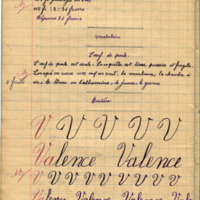 Vocabulaire
L'œuf de poule.
L'œuf de poule est ovale. La coquille est lisse, poreuse et fragile.
Lorsqu'on casse un œuf on voit: la membrane, la chambre à
air, le blanc ou l'albumine, le jaune, le germe.
Écriture
V V V V V
Valence Valence
V V V V V V V V V
Valence Valence Valence Vale